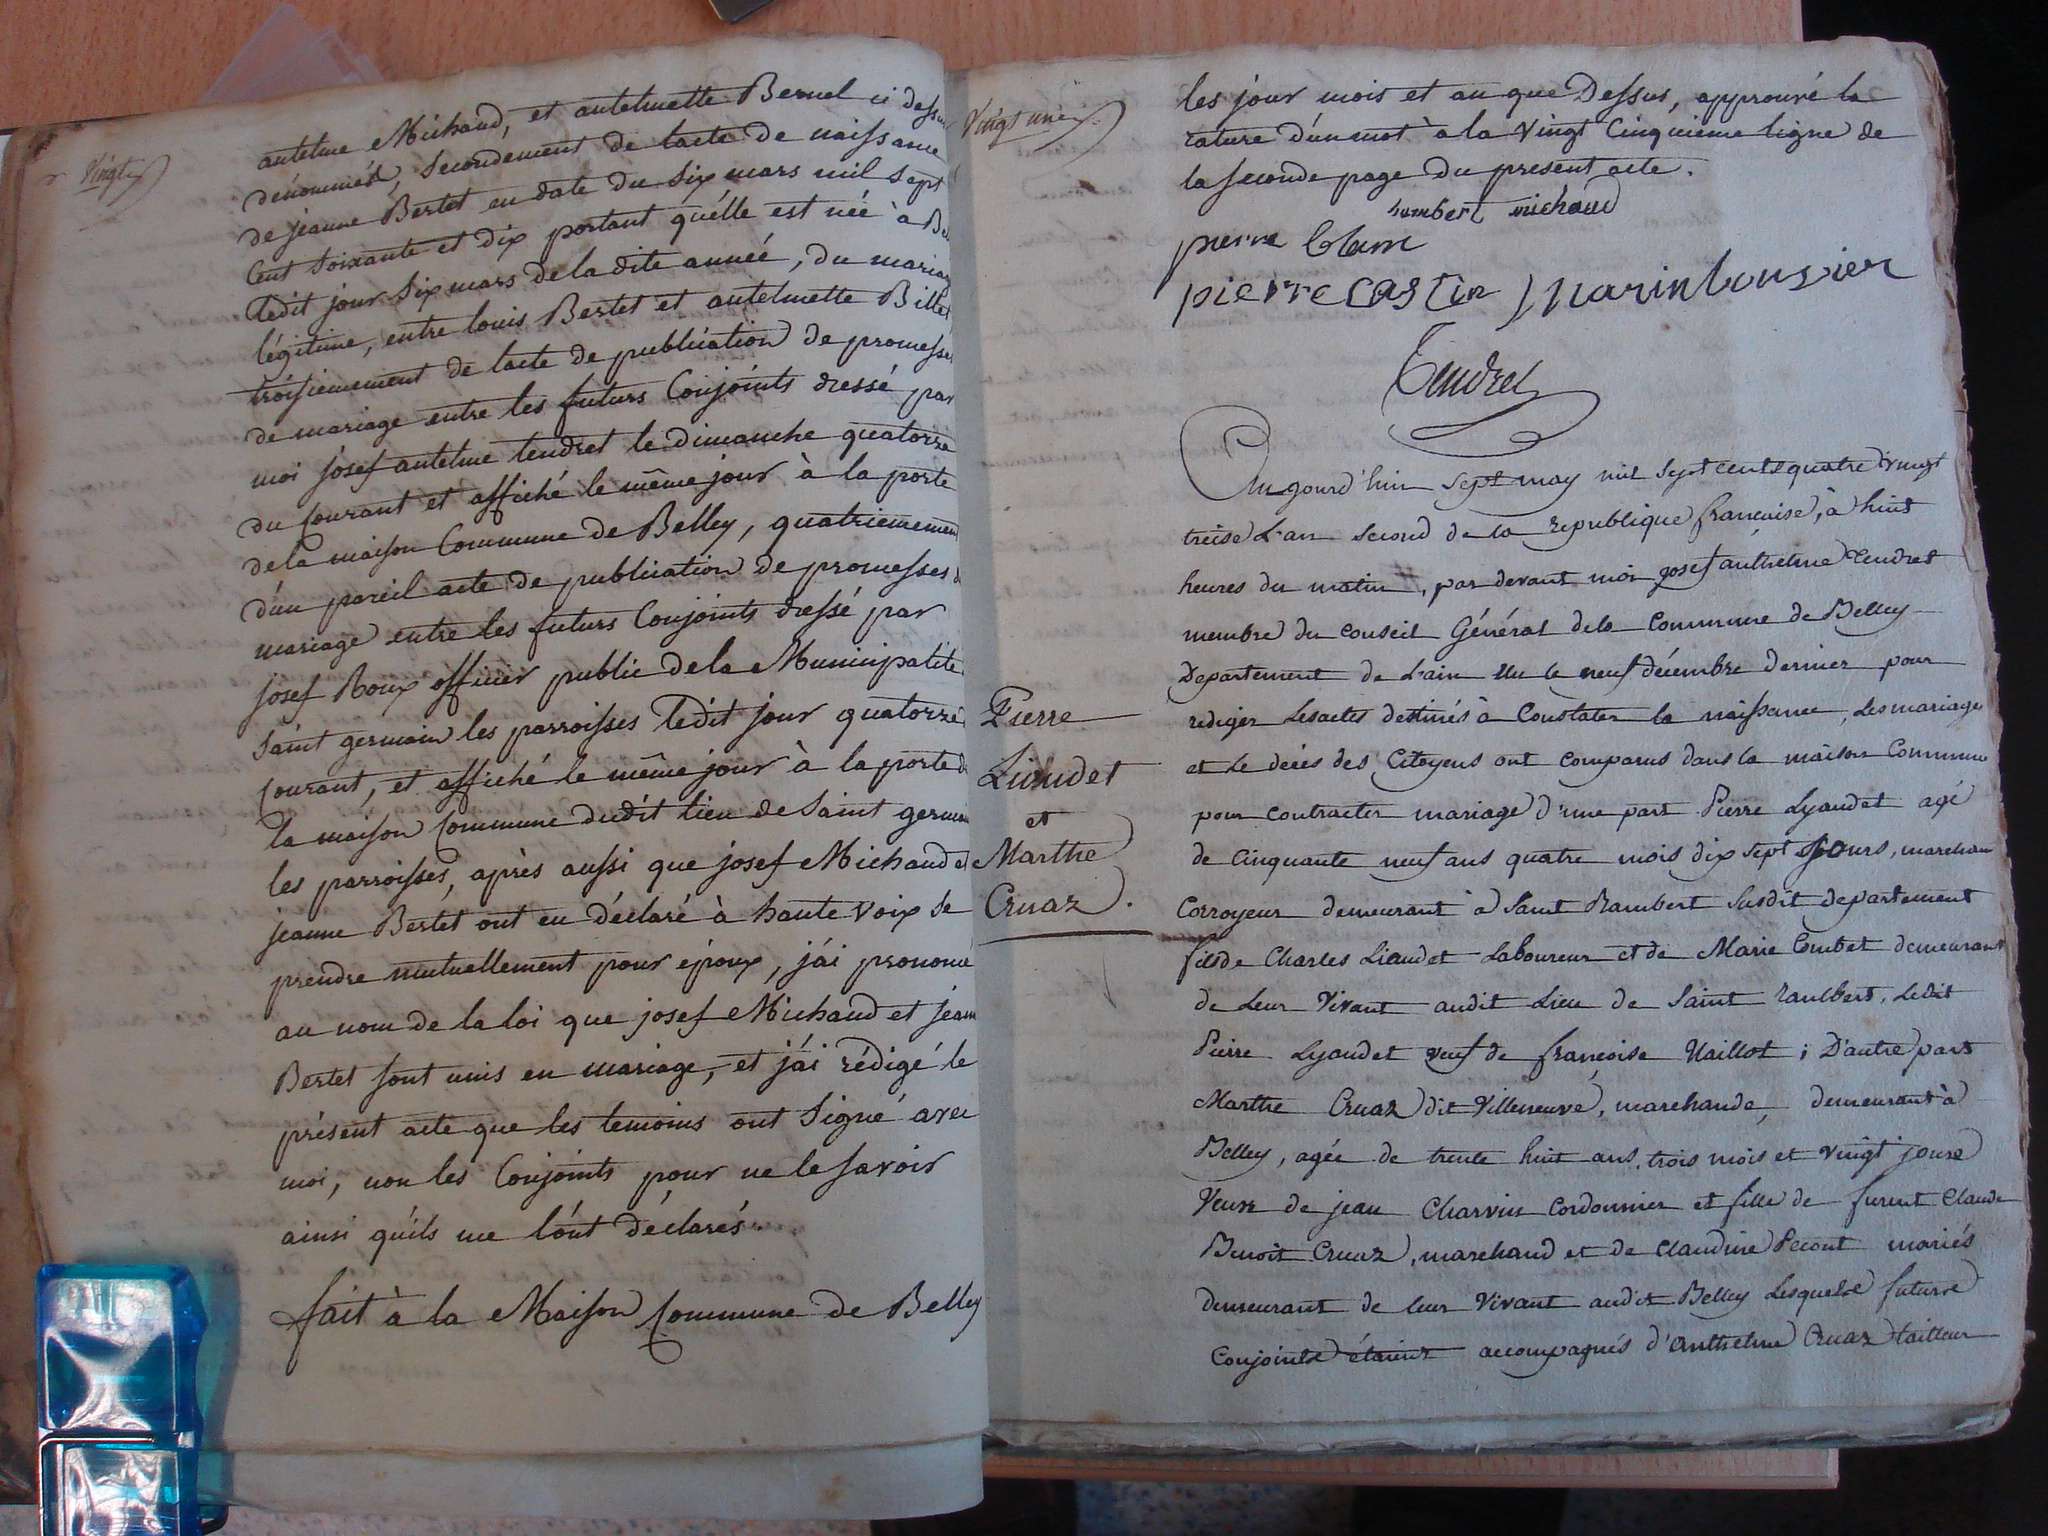 Vingt
antelme Michaud, et antelmette Bernel ci dessus
dénommés, secondement de lacte de naissance
de jeanne Bertet en date du six mars mil sept
cent soixante et dix portant qu'elle est née à
ledit jour six mars de la dite année, du mariage
légitime, entre louis Bertet et antelmette Billet
troisiemement de lacte de publication de promesses
de mariage entre les futurs Conjoints dressé par
moi josef antelme tendret le dimanche quatorze
du courant et affiché le même jour à la porte
de la maison Commune de Belley, quatriemement
d'un pareil acte de publication de promesses de
mariage entre les futurs Conjoints dressé par
josef Roux officier public de la Municipalité
saint germain les parroisses ledit jour quatorze
courant, et affiché le même jour à la porte de
la maison Commune dudit lieu de saint germain
les parroisses, après aussi que josef Michaud et
jeanne Bertet ont eu déclaré à haute voix se
prendre mutuellement pour époux, j'ai prononcé
au nom de la loi que josef Michaud et jeanne
Bertet sont unis en mariage, et j'ai rédigé le
présent acte que les temoins ont signé avec
moi, non les Conjoints pour ne le savoir
ainsi qu'ils me l'ont déclarés.
fait à la Maison Commune de Belley
Vingt un
les jour mois et an que Dessus, approuvé la
rature d'un mot à la vingt cinquieme ligne de
la seconde page du present acte.
humbert michaud
pierre blanc
pierre castin
Tendret
Aujourd'hui sept may mil sept cents quatre vingt
treise L'an second de la republique francoise, à huit
heures du matin, par devant moi josef anthelme Tendret
membre du conseil Général de la Commune de Belley
Departement de L'ain elu le neuf décembre dernier pour
rediger les actes destinés à Constater la naissance, les mariages
et le décès des Citoyens ont comparus dans la maison Commune
pour contracter mariage d'une part Pierre Lyaudet agé
de cinquante neuf ans quatre mois dix sept jours, marchand
Corroyeur demeurant à Saint Rambert susdit departement
fils de Charles Liaudet Laboureur et de Marie Combet demeurant
de leur vivant audit Lieu de Saint ranbert, Ledit
Pierre Lyaudet veuf de françoise Vaillot ; D'autre part
Marthe Cruaz dit Villeneuve, marchande, demeurant à
Belley, agée de trente huit ans, trois mois et vingt jours
Veuve de jean Charvin Cordonnier et fille de furent Claude
Benoit Cruaz, marchand et de Claudine Pecout mariés
demeurant de leur vivant audit Belley Lesquels futurs
Conjoints étaient accompagnés d'Anthelme Cruaz tailleur
Pierre
Liaudet
et
Marthe
Cruaz.